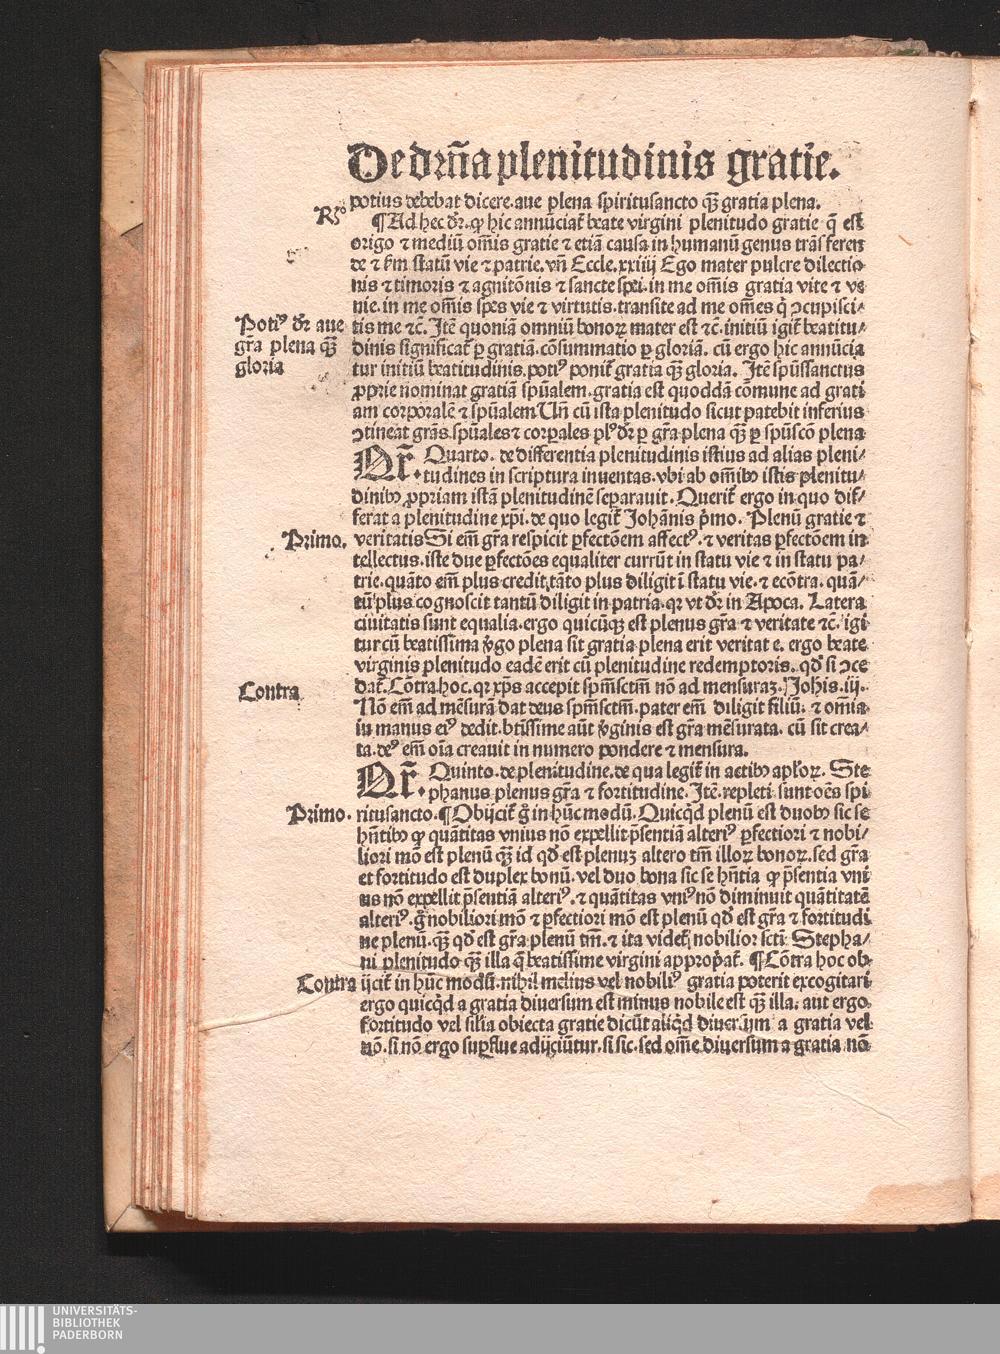 De drn̄a plenitudinis gratie.
potius debebat dicere. aue plena spiritusancto qȝ̄ gratia plena.
Rȝo
¶Ad hec dr̄. ꝙ hic annūciat̄ beate virgini plenitudo gratie q̄ est
origo ⁊ mediū om̄is gratie ⁊ etiā causa in humanū genus trāsferen
de ⁊ ẜm statū vie ⁊ patrie. vn̄ Eccle. xxiiij Ego mater pulcre dilectio
nis ⁊ timoris ⁊ agnitōnis ⁊ sancte spei. in me om̄is gratia vite ⁊ ve
nie. in me om̄is spes vie ⁊ virtutis. transite ad me om̄es q̇ ꝯcupisci⸗
Potiꝰ dr̄ aue
gr̄a plena qȝ̄
gloria
tis me ⁊c̄. Itē quoniā omniū bonoꝝ mater est ⁊c̄. initiū igit̄ beatitu⸗
dinis significat̄ ꝑ gratiā. cōsummatio ꝑ gloriā. cū ergo hic annūcia
tur initiū beatitudinis. potiꝰ ponit̄ gratia qȝ̄ gloria. Itē spūssanctus
ꝓprie nominat gratiā spūalem. gratia est quoddā cōmune ad grati
am corporalē ⁊ spūalem Un̄ cū ista plenitudo sicut patebit inferius
ꝯtineat grās. spūales ⁊ corꝑales plꝰ dr̄ ꝑ gr̄a plena qȝ̄ ꝑ spūscō plena
Nr̄. Quarto. de differentia plenitudinis istius ad alias pleni⸗
tudines in scriptura inuentas. vbi ab om̄ibꝰ istis plenitu⸗
dinibꝰ ꝓpriam istā plenitudinē separauit. Querit̄ ergo in quo dif⸗
ferat a plenitudine xp̄i. de quo legit̄ Johānis p̄mo. Plenū gratie ⁊
Primo.
veritatis Si em̄ gr̄a respicit ꝑfectōem affectꝰ. ⁊ veritas ꝑfectōem in
tellectus. iste due ꝑfectōes equaliter currūt in statu vie ⁊ in statu pa⸗
trie. quāto em̄ plus credit, tāto plus diligit ī statu vie. ⁊ ecōtra. quā⸗
tū plus cognoscit tantū diligit in patria. qꝛ vt dr̄ in Apoca. Latera
ciuitatis sunt equalia. ergo quicūqȝ est plenus gr̄a ⁊ veritate ⁊c̄. igi
tur cū beatissima v̇go plena sit gratia plena erit veritate. ergo beate
virginis plenitudo eadē erit cū plenitudine redemptoris. qd̄ si ꝯce
Contra
dat̄. Cōtra hoc. qꝛ xp̄s accepit spm̄sctm̄ nō ad mensuraȝ. Johis. iij.
Nō em̄ ad mēsurā dat deus spm̄sctm̄. pater em̄ diligit filiū. ⁊ om̄ia
in manus eiꝰ dedit. btissime aūt v̇ginis est gr̄a mēsurata. cū sit crea⸗
ta. deꝰ em̄ oīa creauit in numero pondere ⁊ mensura.
Nr̄. Quinto. de plenitudine. de qua legit̄ in actibꝰ apl̄oꝝ. Ste
phanus plenus gr̄a ⁊ fortitudine. Itē. repleti sunt oēs spi
Primo.
ritusancto. ¶Obijcit̄ ḡ in hūc modū. Quicqd̄ plenū est duobꝰ sic se
hn̄tibꝰ ꝙ quātitas vnius nō expellit p̄sentiā alteriꝰ ꝑfectiori ⁊ nobi⸗
liori mō est plenū qȝ̄ id qd̄ est plenuȝ altero tm̄ illoꝝ bonoꝝ. sed gr̄a
et fortitudo est duplex bonū. vel duo bona sic se hn̄tia ꝙ p̄sentia vni
us nō expellit p̄sentiā alteriꝰ. ⁊ quātitas vniꝰ nō diminuit quātitatē
alteriꝰ. ḡ nobiliori mō ⁊ ꝑfectiori mō est plenū qd̄ est gr̄a ⁊ fortitudi
ne plenū. qȝ̄ qd̄ est gr̄a plenū tm̄. ⁊ ita videt̄ nobilior scti Stepha⸗
ni plenitudo qȝ̄ illa q̄ beatissime virgini appropat̄. ¶Cōtra hoc ob
Contra
ijcit̄ in hūc modū. nihil melius vel nobiliꝰ gratia poterit excogitari
ergo quicqd̄ a gratia diuersum est minus nobile est qȝ̄ illa. aut ergo
fortitudo vel silia obiecta gratie dicūt aliqd̄ diuersum a gratia vel
nō. si nō ergo suꝑflue adijciūtur. si sic. sed om̄e diuersum a gratia nō
UNIVERSITÄTS-
BIBLIOTHEK
PADERBORN